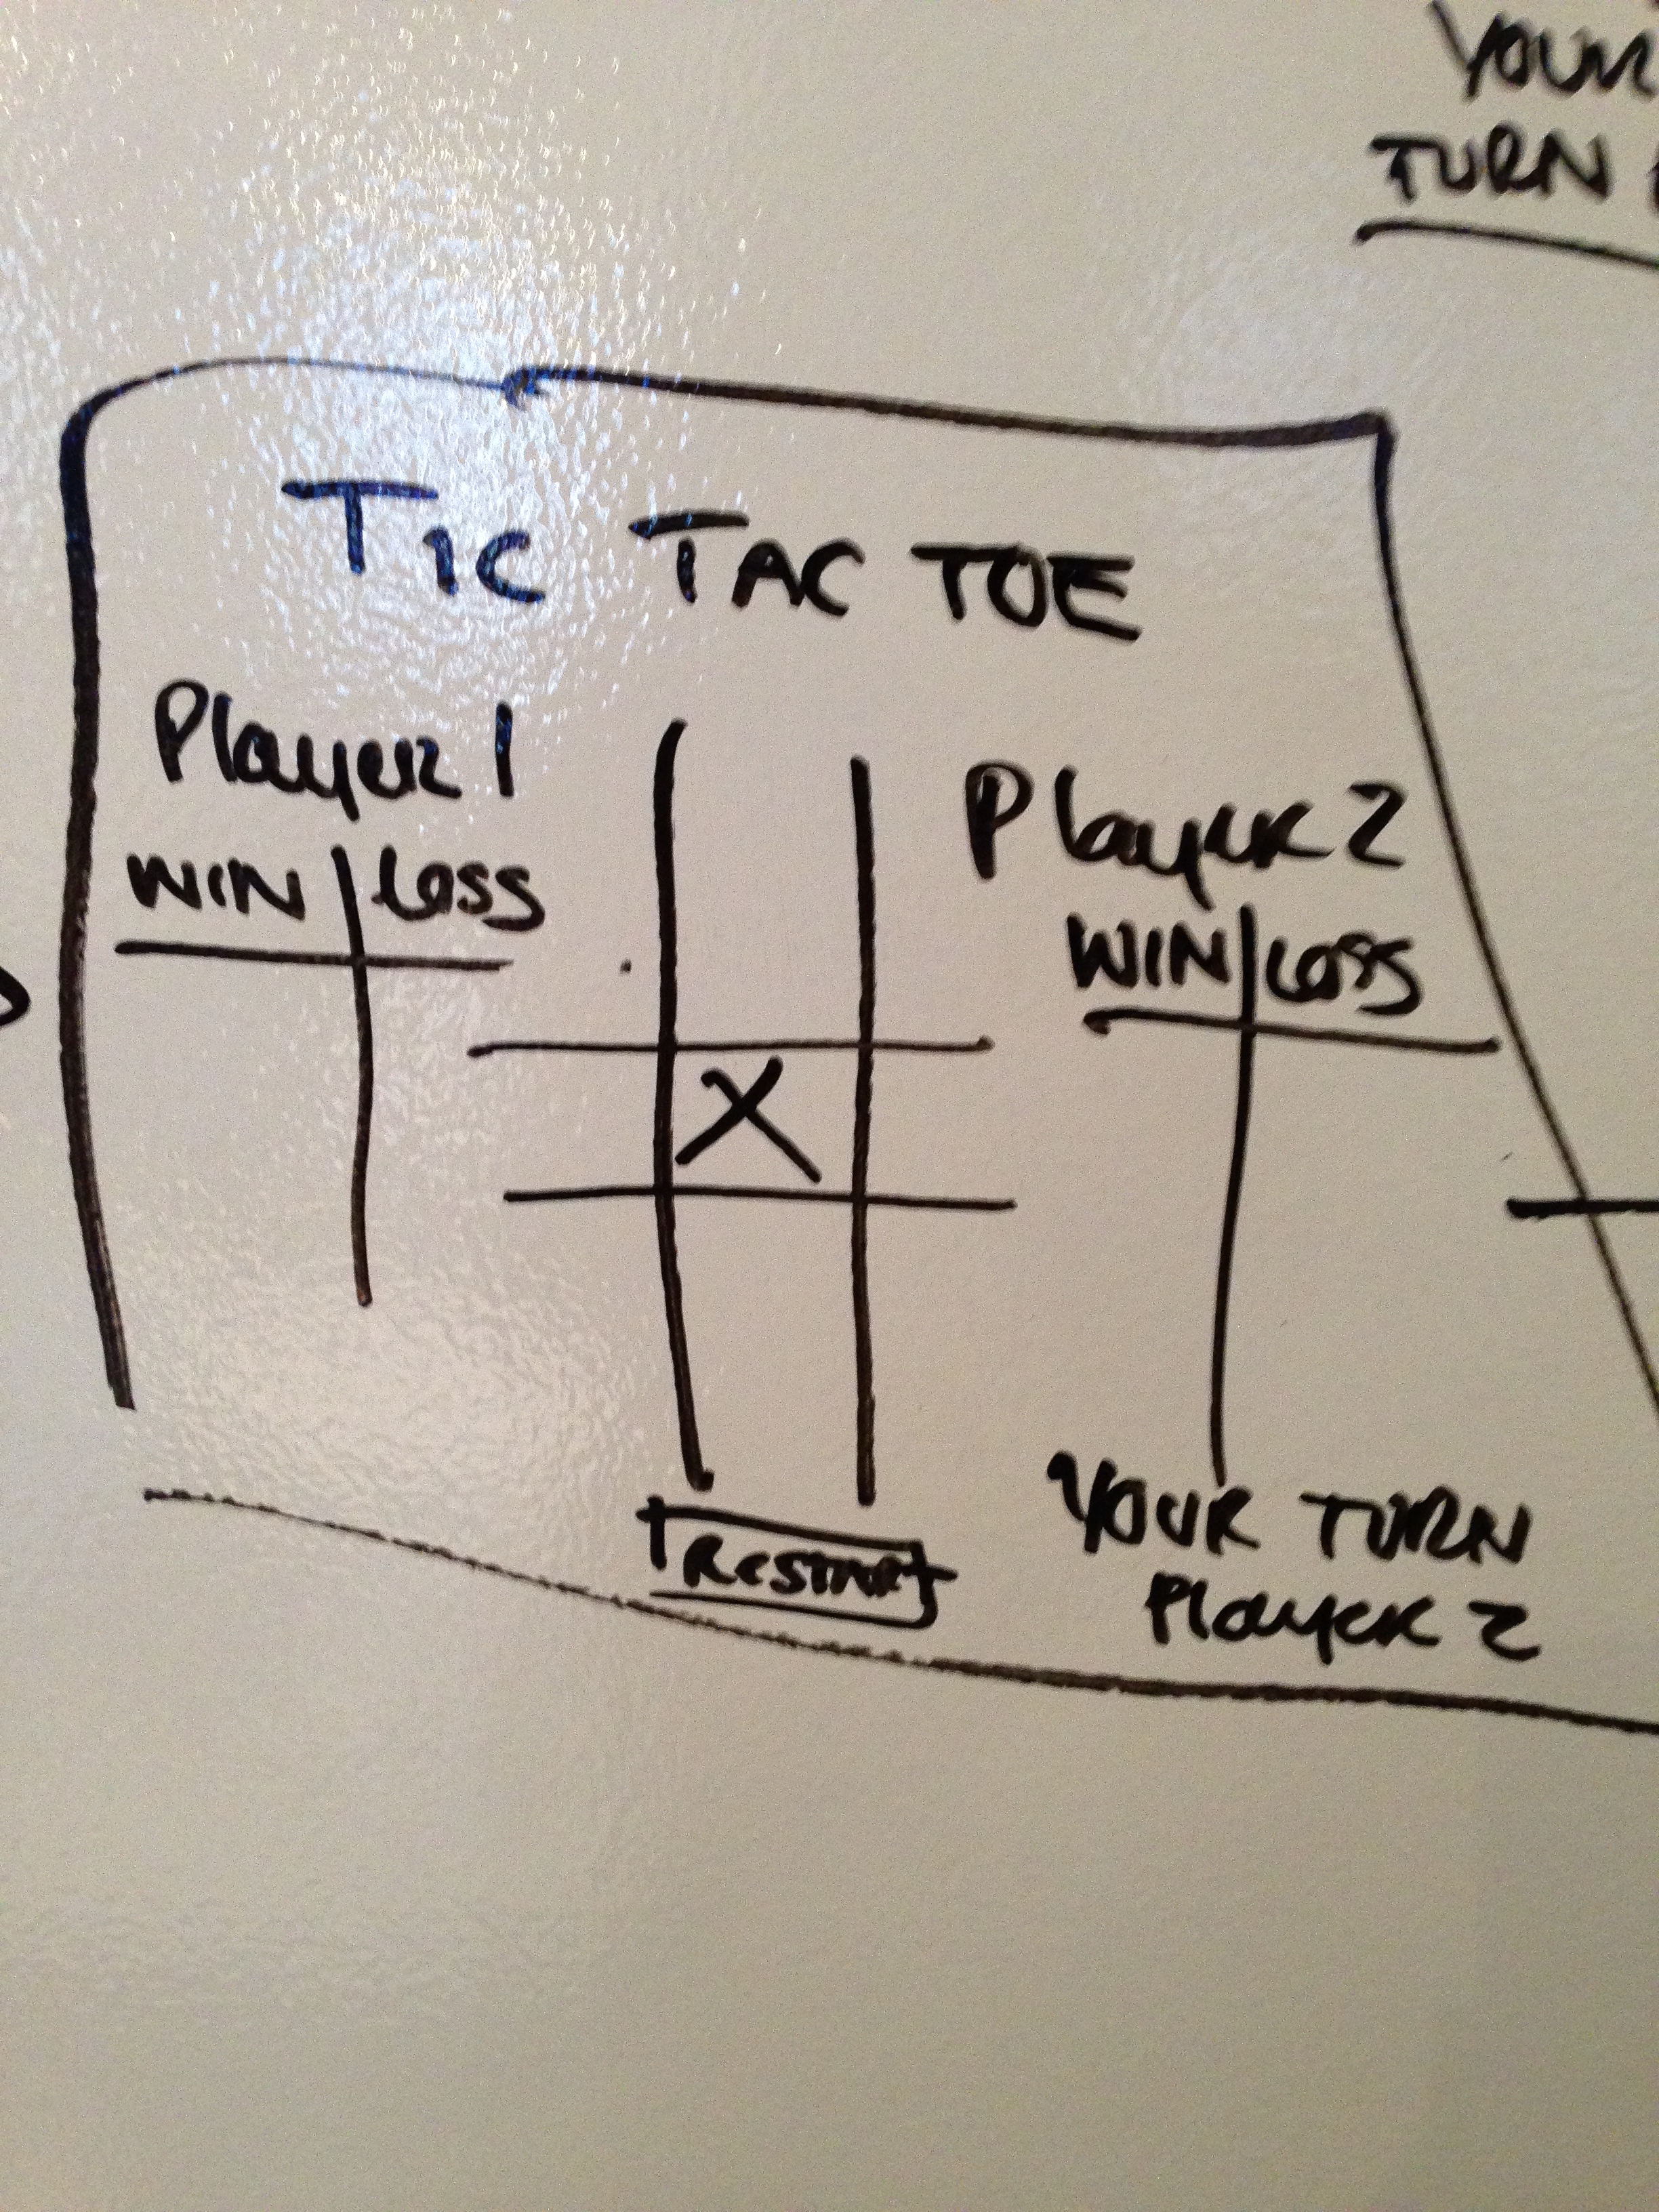 YOUR
TURN
TIC TAC TOE
Player 1
WIN Loss
Player 2
WIN Loss
X
RESTART
YOUR TURN
Player 2